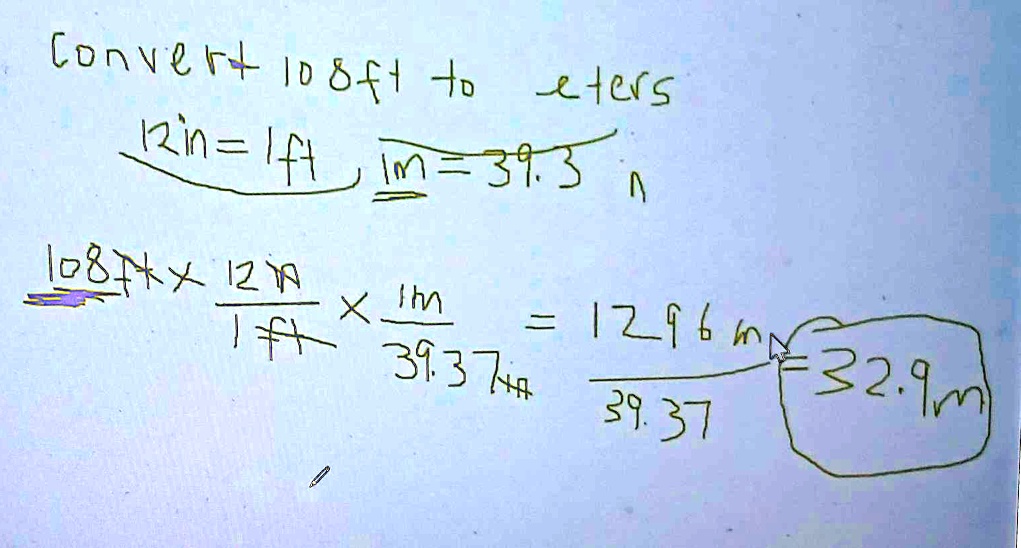 convert 108ft to eters
12in = 1ft, 1m = 39.3 n
108ft x 12in/1ft x 1m/39.37in = 1296m/39.37 = 32.9m